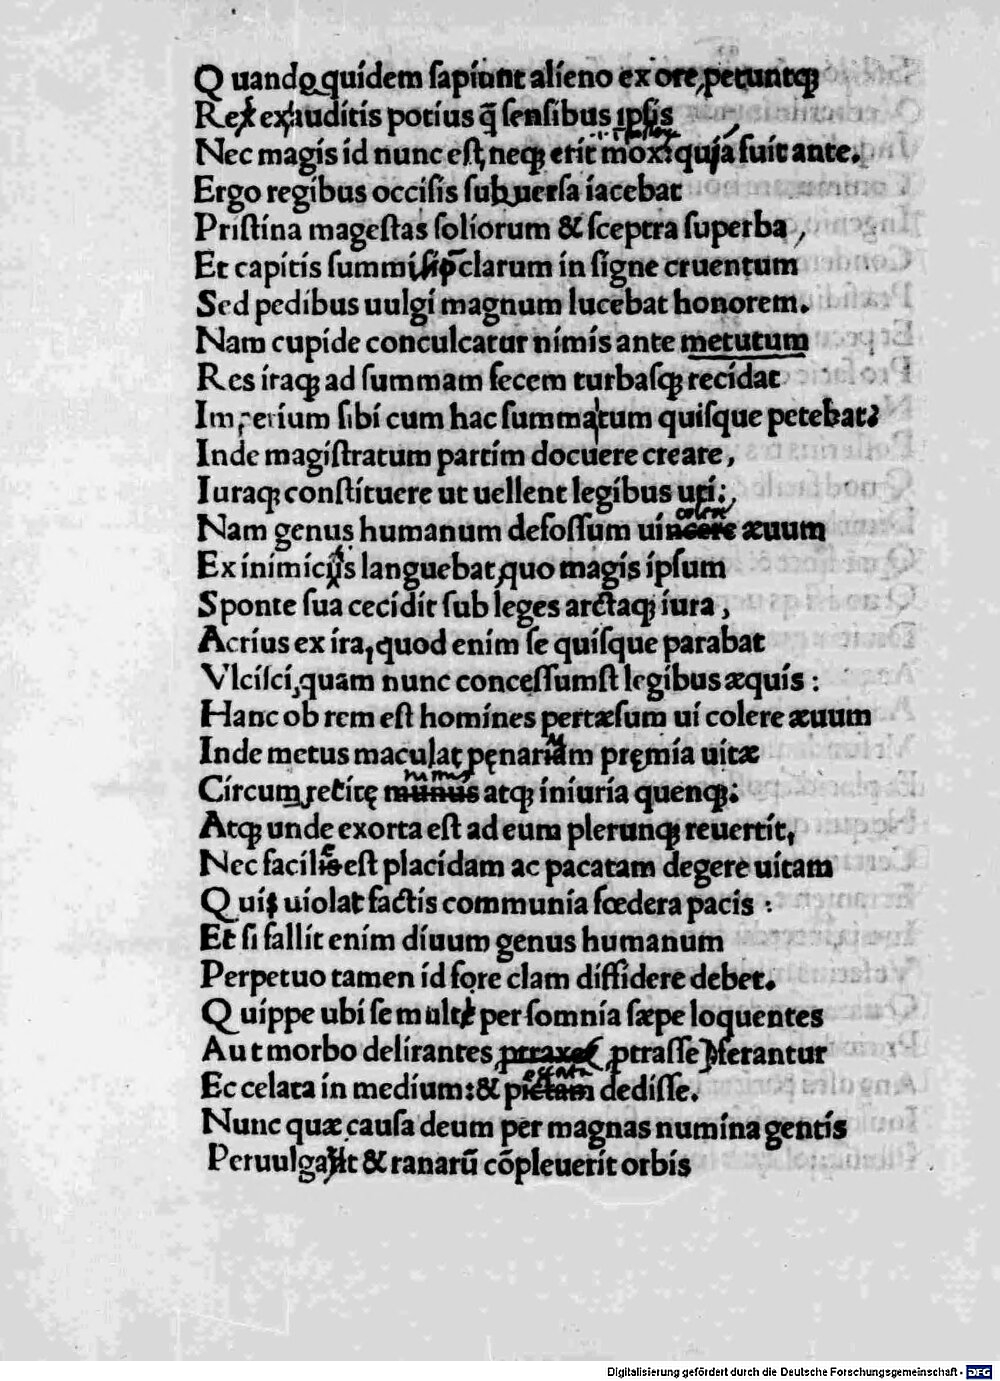 Q uando quidem sapiunt alieno ex ore, petuntq;
Res ex auditis potius q̃ sensibus ipsis
Nec magis id nunc est, neq; erit mox: quiá fuit ante.
Ergo regibus occisis subuersa iacebat
Pristina magestas soliorum & sceptra superba,
Et capitis summi p̃clarum in signe cruentum
Sed pedibus uulgi magnum lucebat honorem.
Nam cupide conculcatur nimis ante metutum
Res itaq; ad summam fecem turbasq; recidat
Imperium sibi cum hac summatum quisque petebat:
Inde magistratum partim docuere creare,
Iuraq; constituere ut uellent legibus uti:
Nam genus humanum defossum uincere æuum
colere
Ex inimiciis languebat, quo magis ipsum
Sponte sua cecidit sub leges arctaq; iura,
Acrius ex ira, quod enim se quisque parabat
Vlcisci, quam nunc concessumst legibus æquis:
Hanc ob rem est homines pertæsum ui colere æuum
Inde metus maculat pęnariam pręmia uitæ
Circum retitę munus atq; iniuria quenq;:
Atq; unde exorta est ad eum plerunq; reuertit,
Nec facilis est placidam ac pacatam degere uitam
Q uis uiolat factis communia fœdera pacis:
Et si fallit enim diuum genus humanum
Perpetuo tamen id fore clam diffidere debet.
Q uippe ubi se multi per somnia sæpe loquentes
Aut morbo delirantes, ptraxe, ptrasse ferantur
Ec celata in medium: & pictam dedisse.
Nunc quæ causa deum per magnas numina gentis
Peruulgarit & ranarũ cõpleuerit orbis
Digitalisierung gefördert durch die Deutsche Forschungsgemeinschaft - DFG